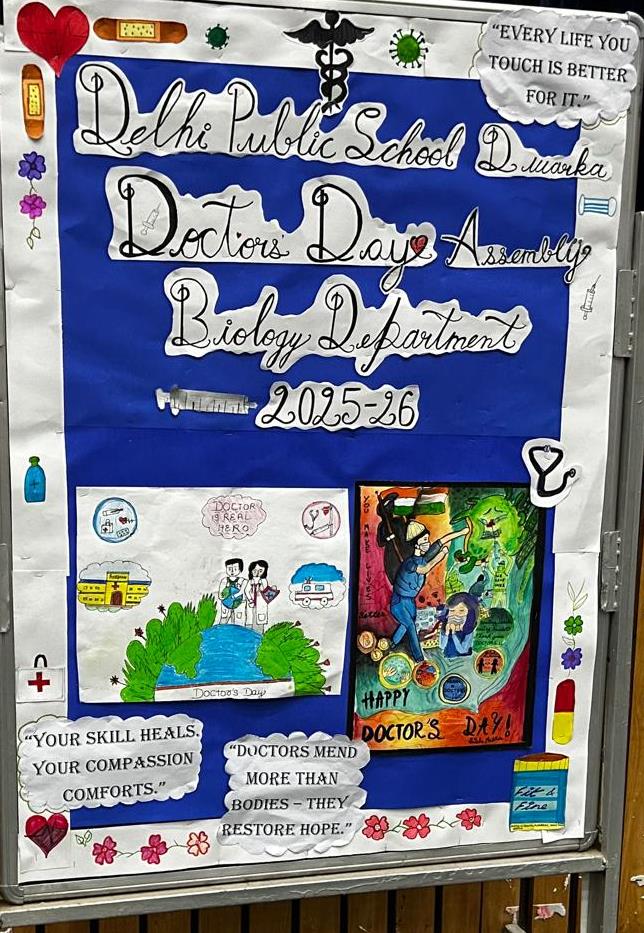 "EVERY LIFE YOU
TOUCH IS BETTER
FOR IT."
Delhi Public School Dwarka
Doctors' Day Assembly
Biology Department
2025-26
DOCTOR
REAL
HERO
Doctor's Day
YOU MAKE LIVES
HAPPY
DOCTOR'S DAY!
"YOUR SKILL HEALS,
YOUR COMPASSION
COMFORTS."
"DOCTORS MEND
MORE THAN
BODIES – THEY
RESTORE HOPE."
Fit &
Fine